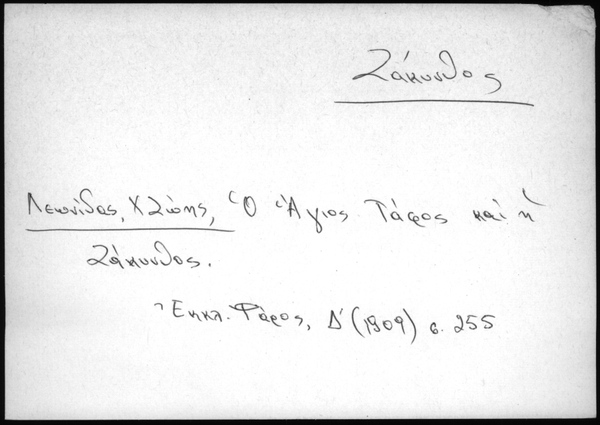 Ζάκυνθος
Λεωνίδας, Χ Ζώης, Ὁ Ἅγιος Τάφος καὶ ἡ
Ζάκυνθος.
Ἐκκλ. Φάρος, Δ' (1909) σ. 255